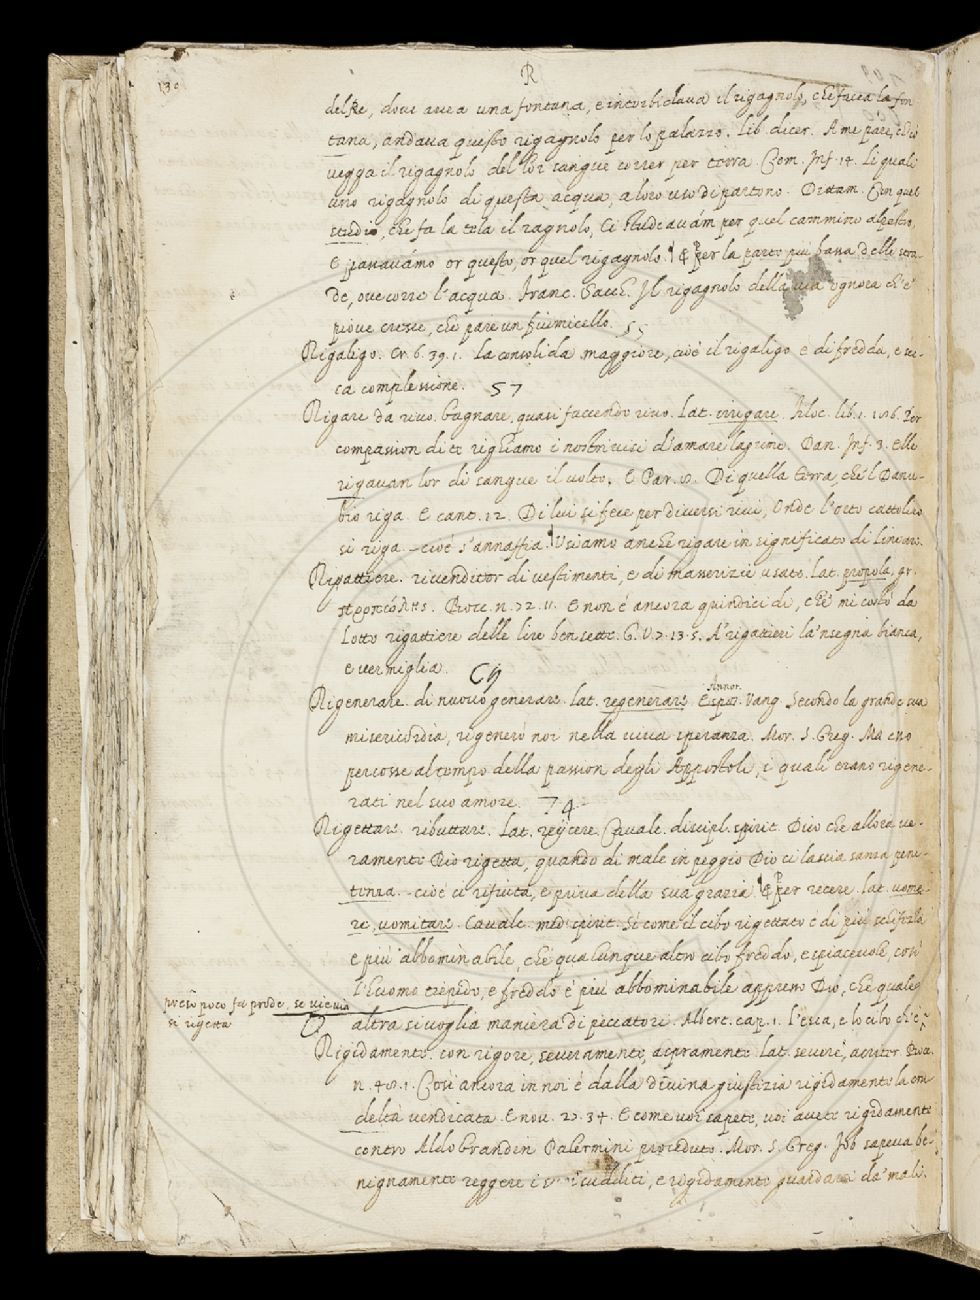 130
R
del Re, dove avea una fontana, e intorbidava il rigagnolo, che facea la fon
tana, andava questo rigagnolo per lo palazzo. Lib. dicer. A me pare, ch'io
vegga il rigagnolo del lor sangue correr per terra. Com. Inf. 14. Li quali
uno rigagnolo di questa acqua, a loro uso dipartono. Dittam. Con quel
studio, che fa la tela il ragnolo, Ci studiavám per quel cammino alpestro,
E passavámo or questo, or quel rigagnolo. ¶ & per la parte più bassa delle stra-
de, ove corre l'acqua. Franc. Sacch. Il rigagnolo della via ognora ch'e'
piove cresce, che pare un fiumicello. 55
Rigaligo. Cr. 6. 39. 1. La consolida maggiore, cioè il rigaligo è di fredda, e sec-
ca complessione. 57
Rigare da rivo. Bagnare, quasi facendo rivo. Lat. irrigare. Filoc. lib. 1. 186. Per
compassion di te righiamo i nostri visi d'amare lagrime. Dan. Inf. 3. Elle
rigavan lor di sangue il volto. E Par. 8. Di quella terra, che 'l Danu-
bio riga. E cant. 12. Di lui si fece poi diversi rivi, Onde l'orto cattolico
si riga. cioè s'annaffia. ¶ Usiamo anche rigare in significato di lineare.
Rigattiere. rivenditor di vestimenti, e di masserizie usate. Lat. propola, gr.
προπώλης. Bocc. n. 72. 11. E non è ancora quindici dì, che mi costò da
Lotto rigattiere delle lire ben sette. G. V. 7. 13. 5. A' rigattieri la 'nsegna bianca,
e vermiglia. 69
Rigenerare. di nuovo generare. Lat. regenerare. Espos. Vang. Secondo la grande sua
Annot.
misericordia, rigenerò noi nella viva speranza. Mor. S. Greg. Ma esso
percosse al tempo della passion degli Appostoli, i quali erano rigene-
rati nel suo amore. 74
Rigettare. ributtare. Lat. reijcere. Cavalc. discipl. spirit. Dico che allora ve-
ramente Dio rigetta, quando di male in peggio Dio ci lascia sanza peni-
tenza. cioè ci rifiuta, e priva della sua grazia. ¶ & per recere. lat. vome-
re, vomitare. Cavalc. med. spirit. Sì come il cibo rigettato è di più schifezza
e più abbominabile, che qualunque altro cibo freddo, e spiacevole, così
l'huomo tiepido, e freddo è più abbominabile appresso Dio, che quale
altra si voglia maniera di peccatori. Albert. cap. 1. L'esca, e lo cibo ch'è
preso poco fa prode, se via via
si rigetta
Rigidamente. con rigore, severamente, aspramente. Lat. severè, acriter. Bocc.
n. 48. 1. Così ancora in noi è dalla divina giustizia rigidamente la cru
deltà vendicata. E nov. 27. 34. E come voi sapete, voi avete rigidamente
contro Aldobrandin Palermini proceduto. Mor. S. Greg. Job sapeva be-
nignamente reggere i suoi sudditi, e rigidamente guardarsi da' mali.